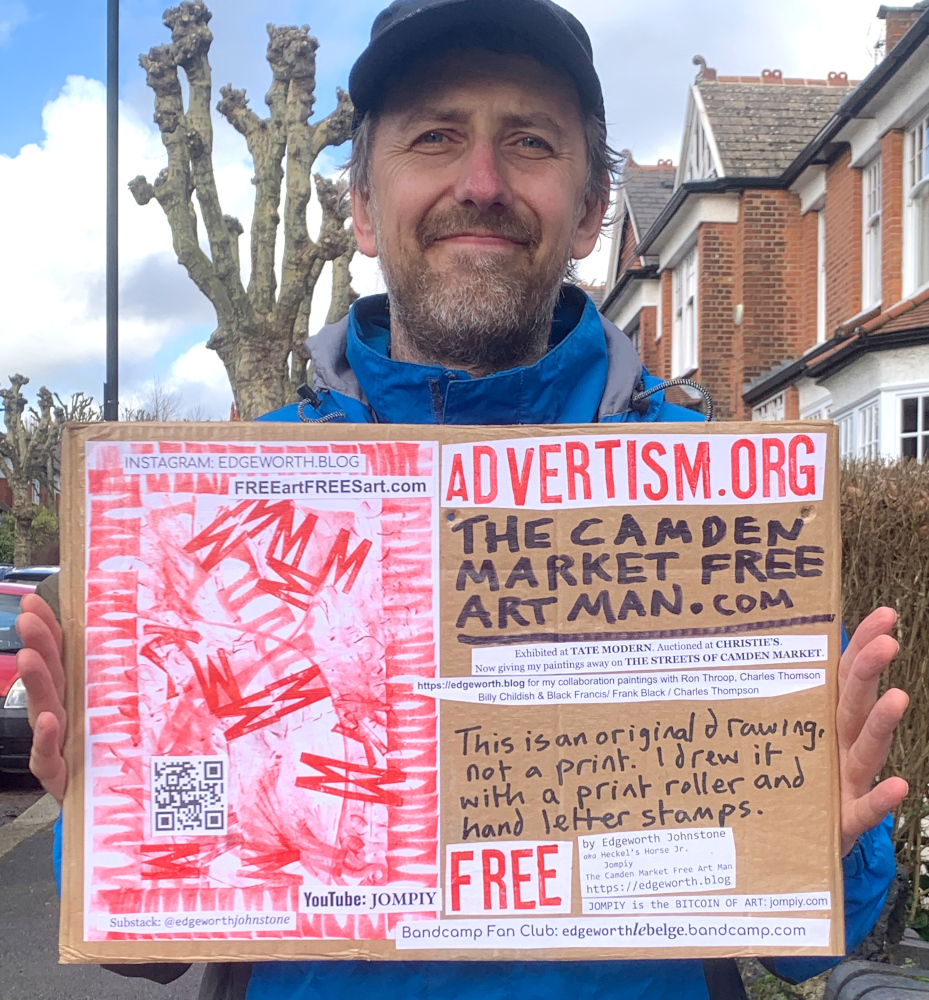 INSTAGRAM: EDGEWORTH.BLOG
FREEartFREESart.com
YouTube: JOMPIY
Substack: @edgeworthjohnstone
ADVERTISM.ORG
THE CAMDEN
MARKET FREE
ART MAN.COM
Exhibited at TATE MODERN. Auctioned at CHRISTIE'S.
Now giving my paintings away on THE STREETS OF CAMDEN MARKET.
https://edgeworth.blog for my collaboration paintings with Ron Throop, Charles Thomson
Billy Childish & Black Francis/ Frank Black / Charles Thompson
This is an original drawing,
not a print. I drew it
with a print roller and
hand letter stamps.
FREE
by Edgeworth Johnstone
aka Heckel's Horse Jr.
Jompiy
The Camden Market Free Art Man
https://edgeworth.blog
JOMPIY is the BITCOIN OF ART: jompiy.com
Bandcamp Fan Club: edgeworthlebelge.bandcamp.com